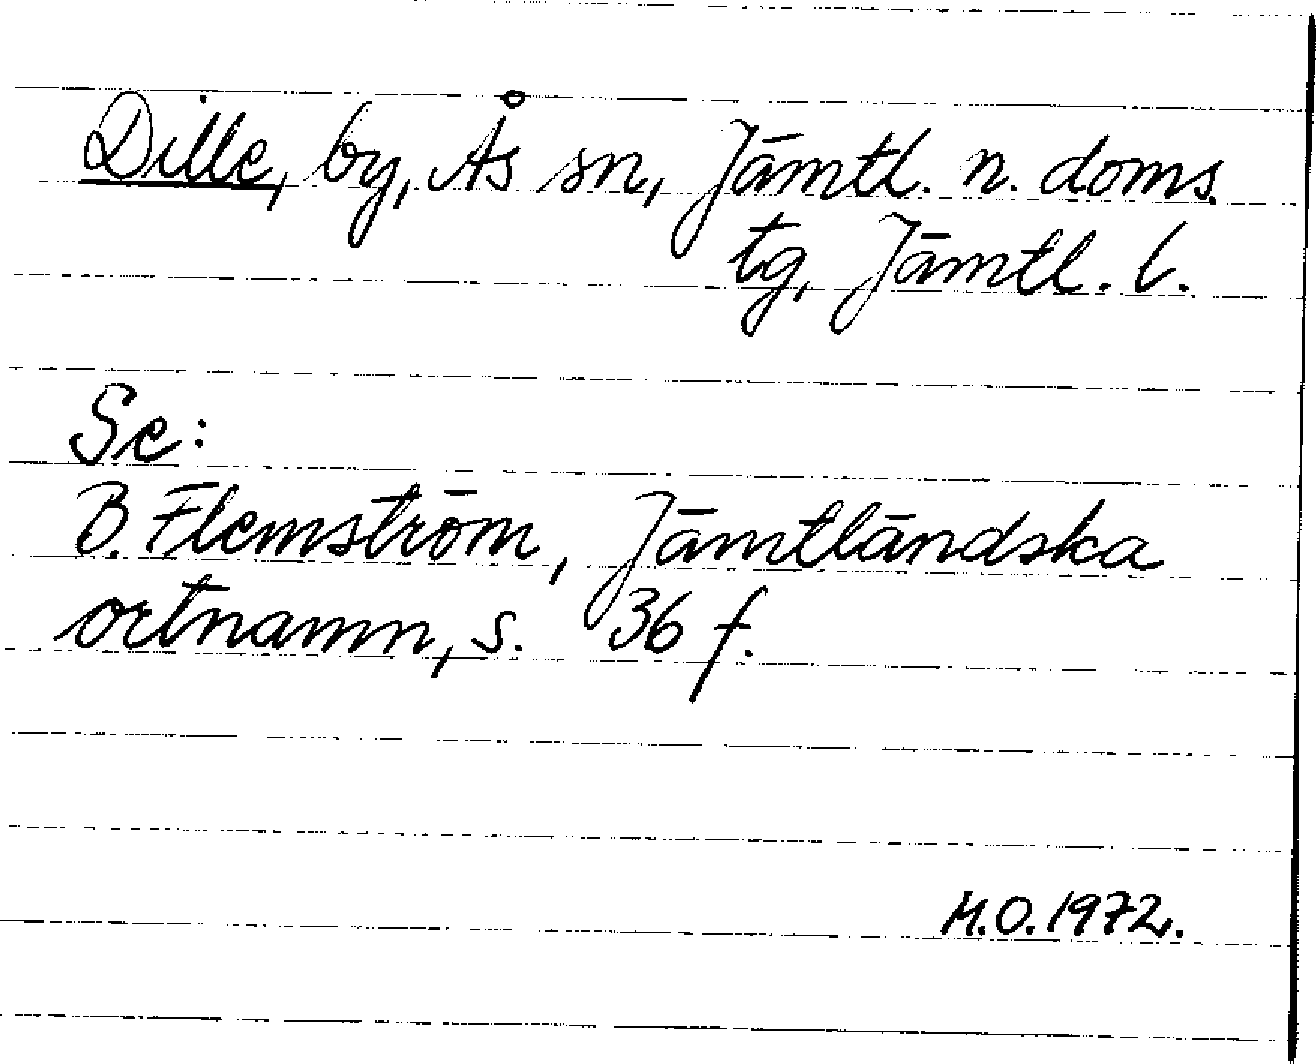 Dille, by, Ås sn, Jämtl. n. doms.
tg, Jämtl. l.
Se:
B. Flemström, Jämtländska
ortnamn, s. 36 f.
M.O. 1972.